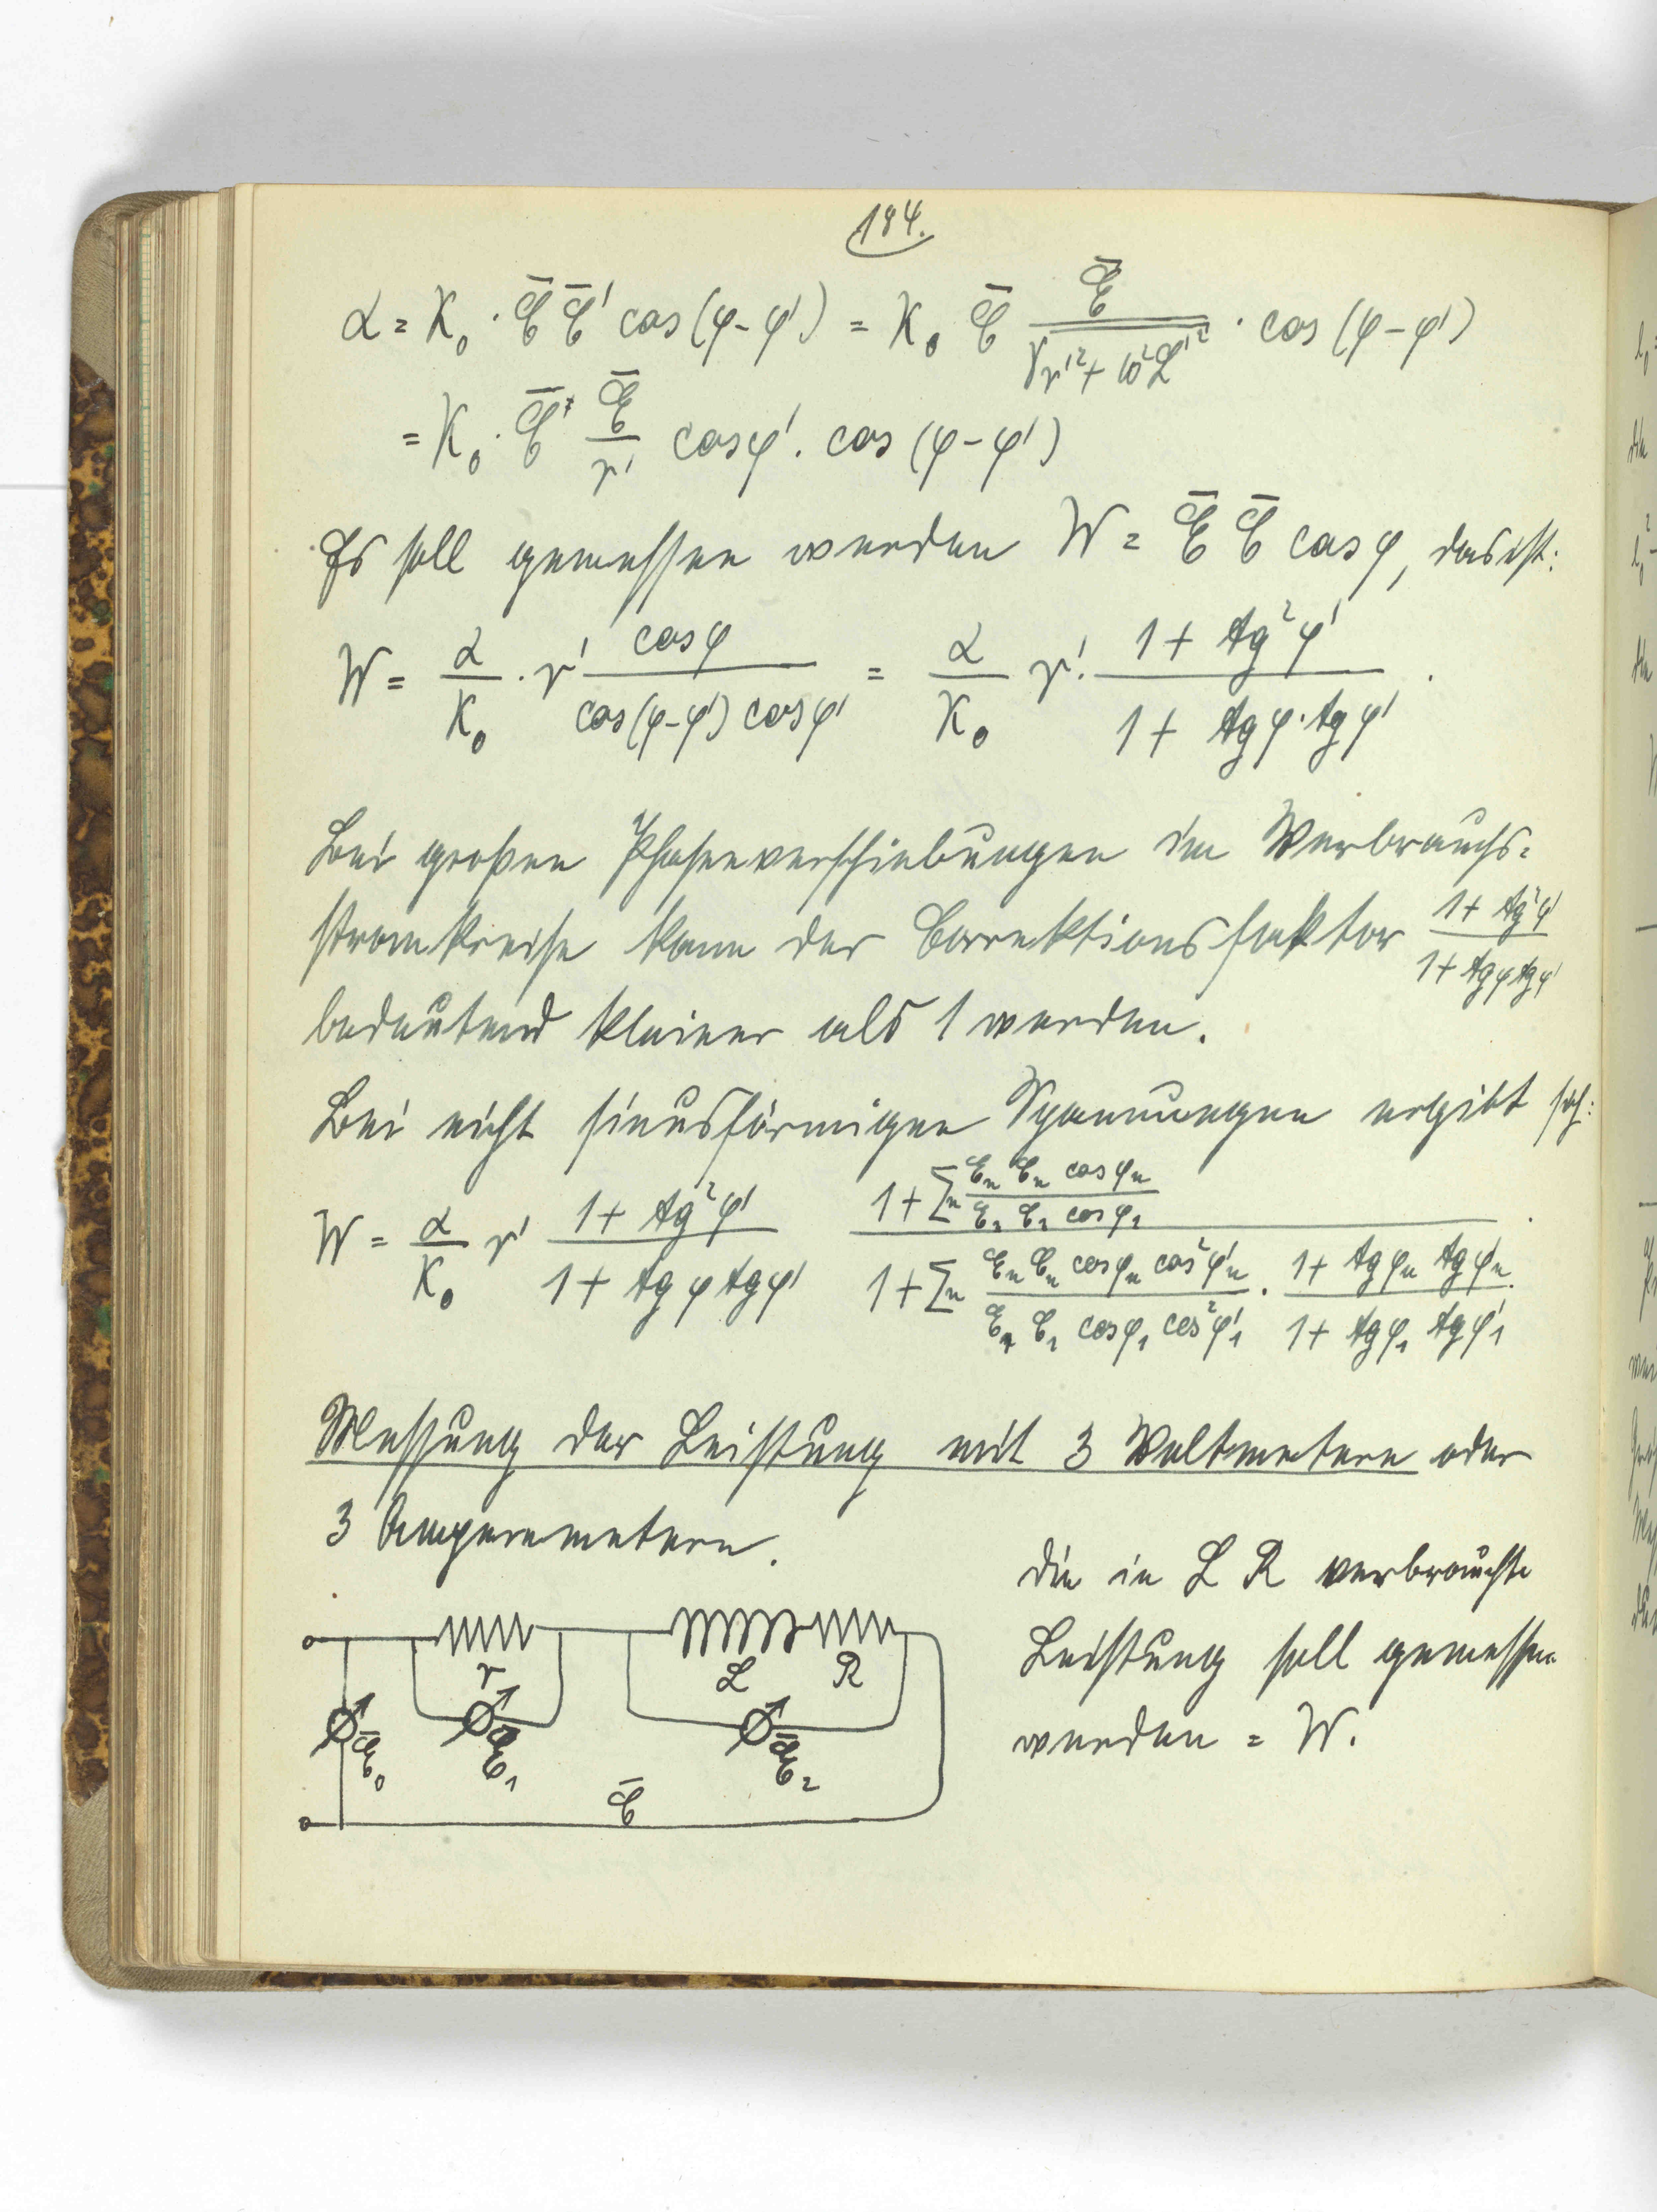 184.
α = K₀ · ℭ̄ ℭ̄' cos(φ-φ') = K₀ ℭ̄ 𝔈̄ / √(r'² + ω²L'²) · cos (φ-φ')
= K₀ · ℭ̄ 𝔈̄ / r' cosφ' . cos (φ-φ')
Es soll gemessen werden W = 𝔈̄ ℭ̄ cos φ, das ist:
W = α/K₀ · r' cosφ / (cos(φ-φ') cosφ') = α/K₀ r' · (1 + tg²φ') / (1 + tgφ · tgφ') .
Bei großen Phasenverschiebungen im Verbrauchs=
stromkreise kann der Correktionsfaktor (1 + tg²φ') / (1 + tgφ tgφ')
bedeutend kleiner als 1 werden.
Bei nicht sinusförmigen Spannungen ergibt sich:
W = α/K₀ r' (1 + tg²φ') / (1 + tgφ tgφ') (1 + Σₙ 𝔈ₙ ℭₙ cosφₙ / 𝔈₁ ℭ₁ cosφ₁) / (1 + Σₙ 𝔈ₙ ℭₙ cosφₙ cos²φ'ₙ / 𝔈₁ ℭ₁ cosφ₁ cos²φ'₁ · (1 + tgφₙ tgφ'ₙ) / (1 + tgφ₁ tgφ'₁))
Messung der Leistung mit 3 Voltmetern oder
3 Amperemetern.
Die in L R verbrauchte
Leistung soll gemessen
werden = W.
r L R
𝔈̄₀ 𝔈̄₁ 𝔈̄₂
ℭ̄